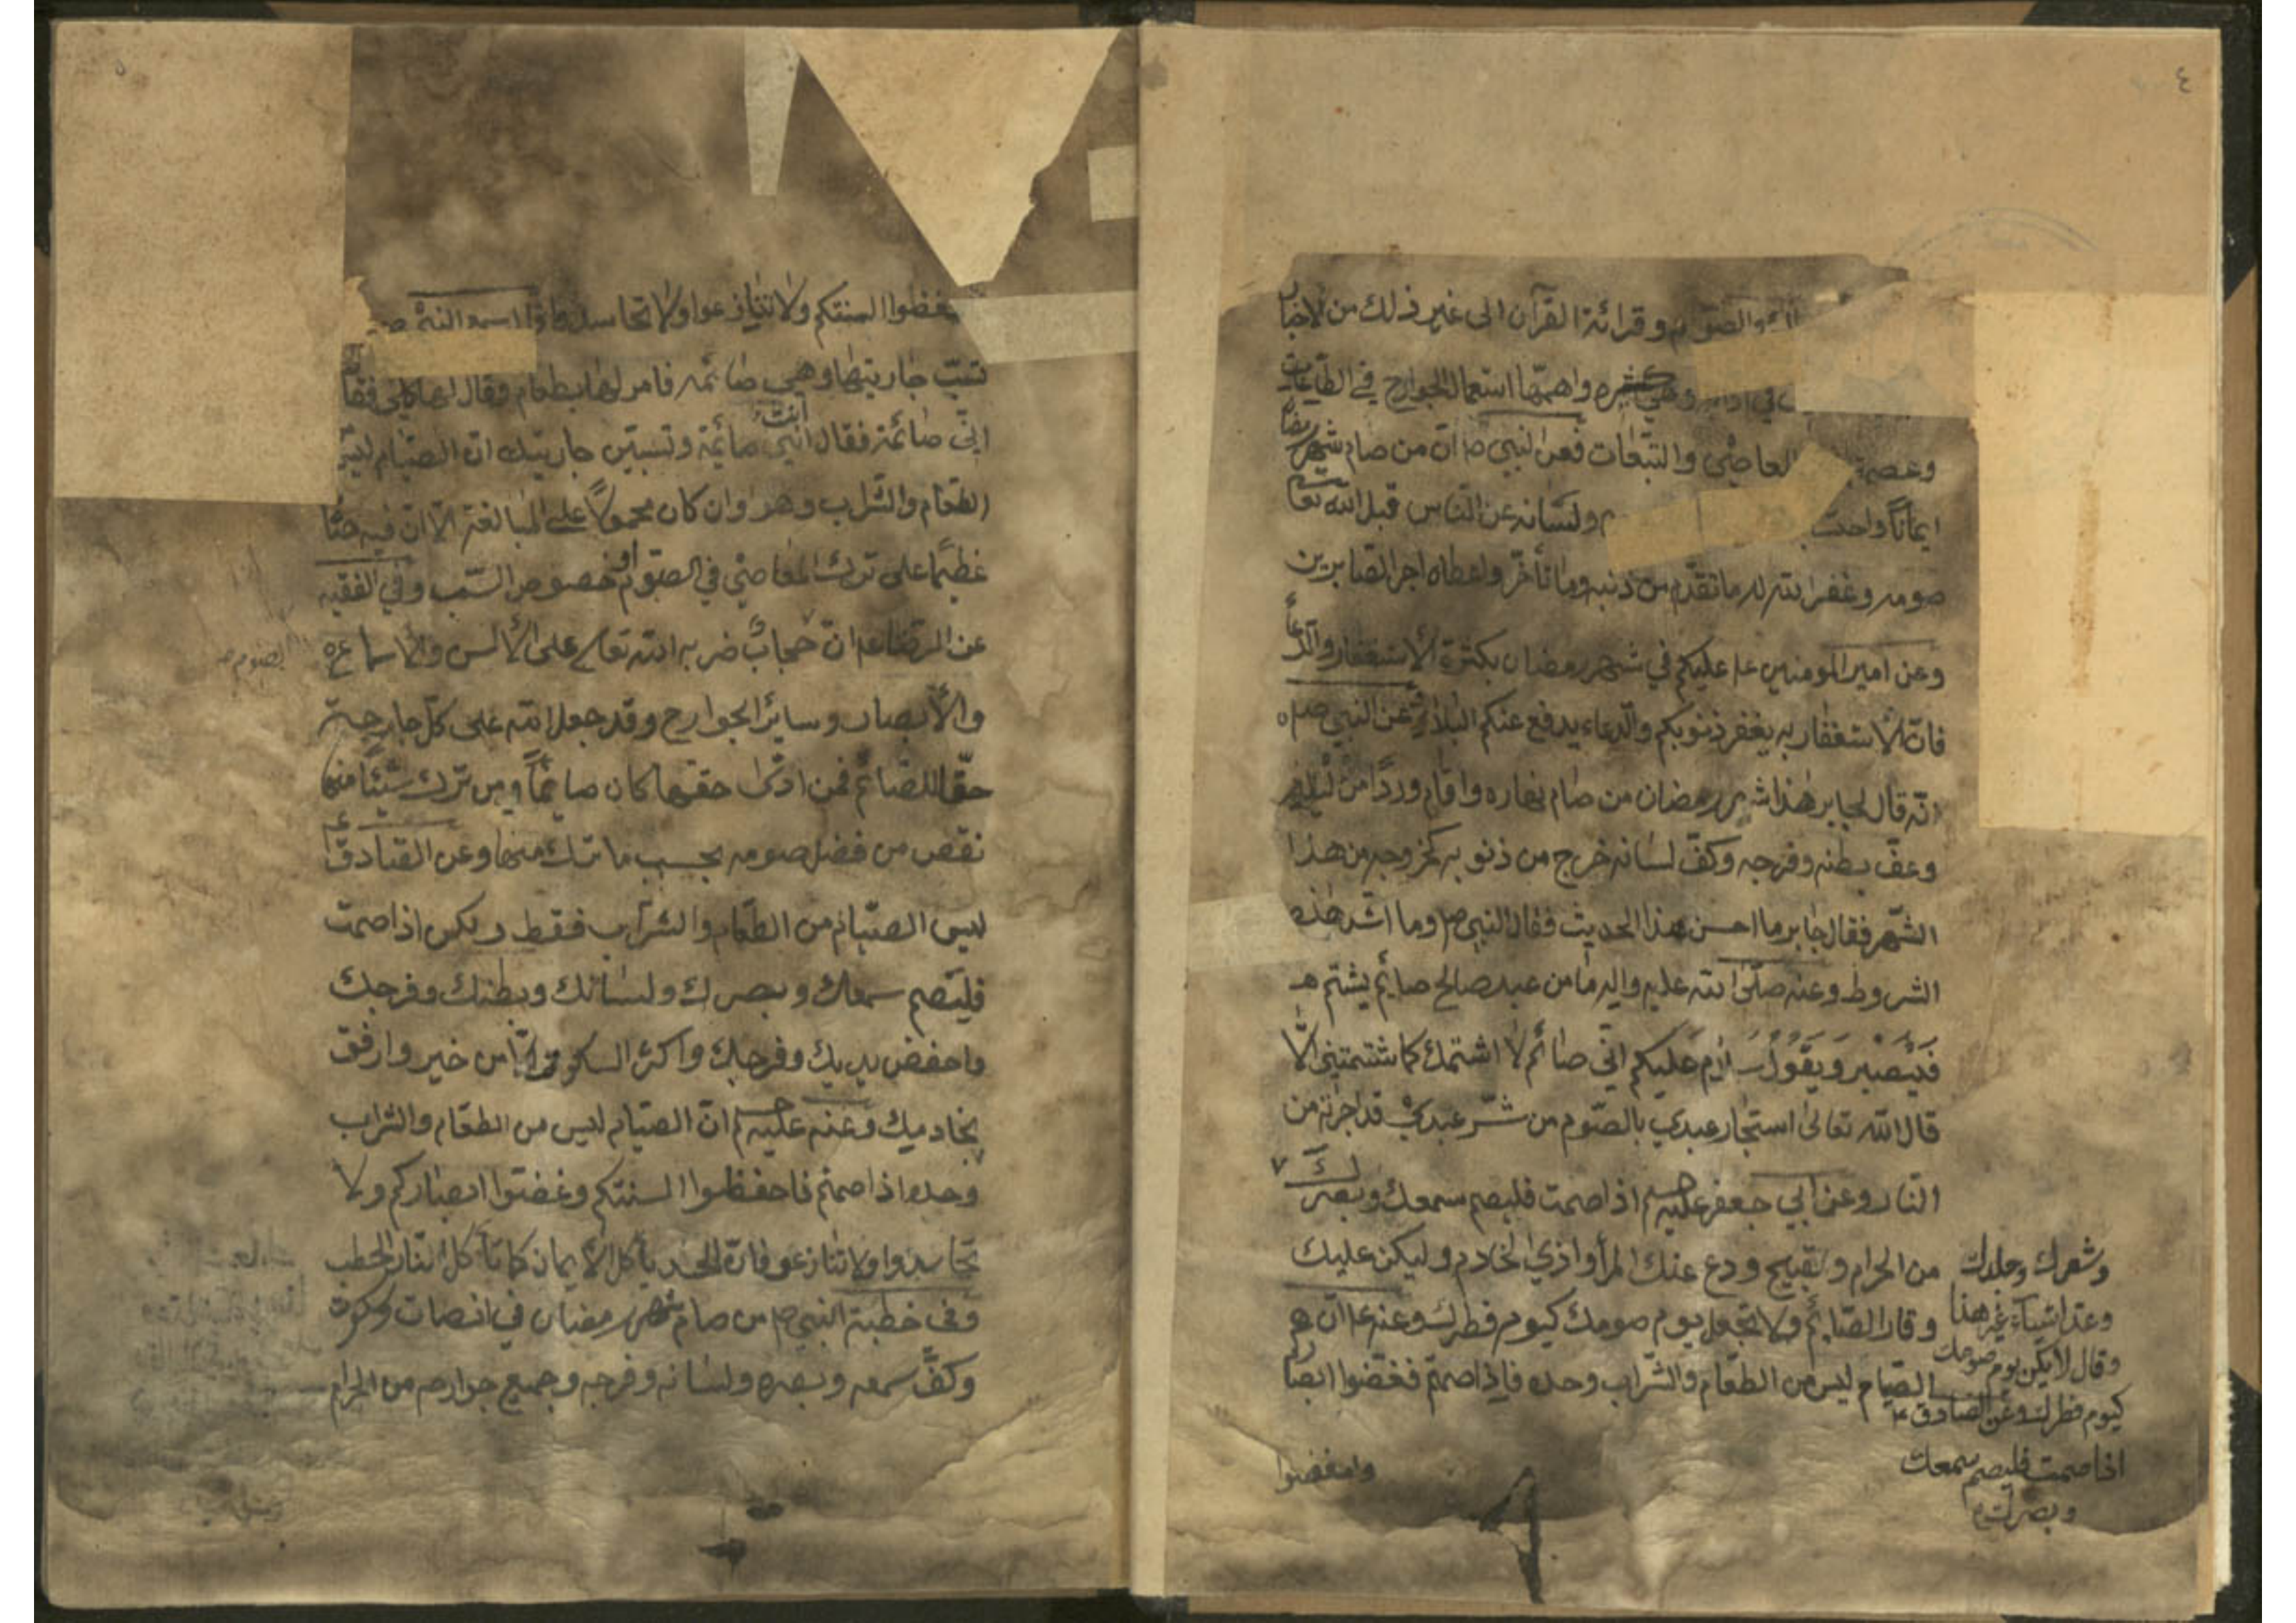 ٤
والصّوم وقرائة القرآن الى غير ذلك من الاخبار
وهي كثيره واهمّها استعمال الجوارح في الطّاعات
وعصمة العاصى والتبّعات فعن النبي ص انّ من صام شهر رمضا
ايمانًا واحت ولسانه عن النّاس قبل الله تعا
صومه وغفر الله له ما تقدّم من ذنبه وما تأخّر واعطاه اجر الصّابرين
وعن امير المومنين ع عليكم في شهر رمضان بكثرة الاستغفار والدّعاء
فانّ الاستغفار به يغفر ذنوبكم والدّعاء يدفع عنكم البلاء عن النبي ص
انّه قال لجابر هذا شهر رمضان من صام نهاره واقام وردًا من ليله
وعفّ بطنه وفرجه وكفّ لسانه خرج من ذنوبه كخروجه من هذا
الشّهر فقال جابر ما احسن هذا الحديث فقال النبي ص وما اشد هذه
الشروط وعنه صلّى الله عليه واله ما من عبد صالح صائم يشتم
فيصبر ويقول سلام عليكم انّي صائم لا اشتمك كما شتمتني الّا
قال الله تعالى استجار عبدي بالصّوم من شرّ عبدي قد اجرته من
النّار وعن ابي جعفر عليه اذا صمت فليصم سمعك وبصرك
من الحرام والقبيح ودع عنك المرا واذي الخادم وليكن عليك
وقار الصّائم ولا تجعل يوم صومك كيوم فطرك وعنه ع ان
الصّيام ليس من الطّعام والشّراب وحده فاذا صمتم فغضّوا ابصاركم
وشعرك وجلدك
وعدّ اشياء غير هذا
وقال لا يكن يوم صومك
كيوم فطرك وعن الصّادق ع
اذا صمت فليصم سمعك
وبصرك
وامغضوا
السنتكم ولا تنازعوا ولا تحاسدوا
تسبّ جاريتها وهي صائمه فامر لها بطعام وقال لها كلي فقا
انّي صائمة فقال انتي صائمة وتسبّين جاريتك انّ الصّيام ليس
الطّعام والشّراب وهو وان كان محمولًا على المبالغة الّا انّ فيه حثّا
عظيما على ترك المعاصي في الصّوم وخصوص السّب وفي الفقيه
عن الرّضا ع انّ حجابًا ضربه الله تعالى على الألسن والأسماع
والأبصار وساير الجوارح وقد جعل الله على كلّ جارحة
حقّا للصّائم فمن ادّى حقّها كان صائمًا ومن ترك شيئًا منها
نقص من فضل صومه بحسب ما ترك منها وعن الصّادق ع
ليس الصّيام من الطّعام والشّراب فقط ولكن اذا صمت
فليصم سمعك وبصرك ولسانك وبطنك وفرجك
واحفض يديك وفرجك واكثر السكوت الّا من خير وارفق
بخادميك وعنه عليه انّ الصّيام ليس من الطّعام والشّراب
وحده اذا صمتم فاحفظوا السنتكم وغضّوا ابصاركم ولا
تحاسدوا ولا تنازعو فانّ الحسد يأكل الأيمان كما تأكل النّار الحطب
وفى خطبة النبي ص من صام شهر رمضان في انصات وسكوت
وكفّ سمعه وبصره ولسانه وفرجه وجميع جوارحه من الحرام
الصوم